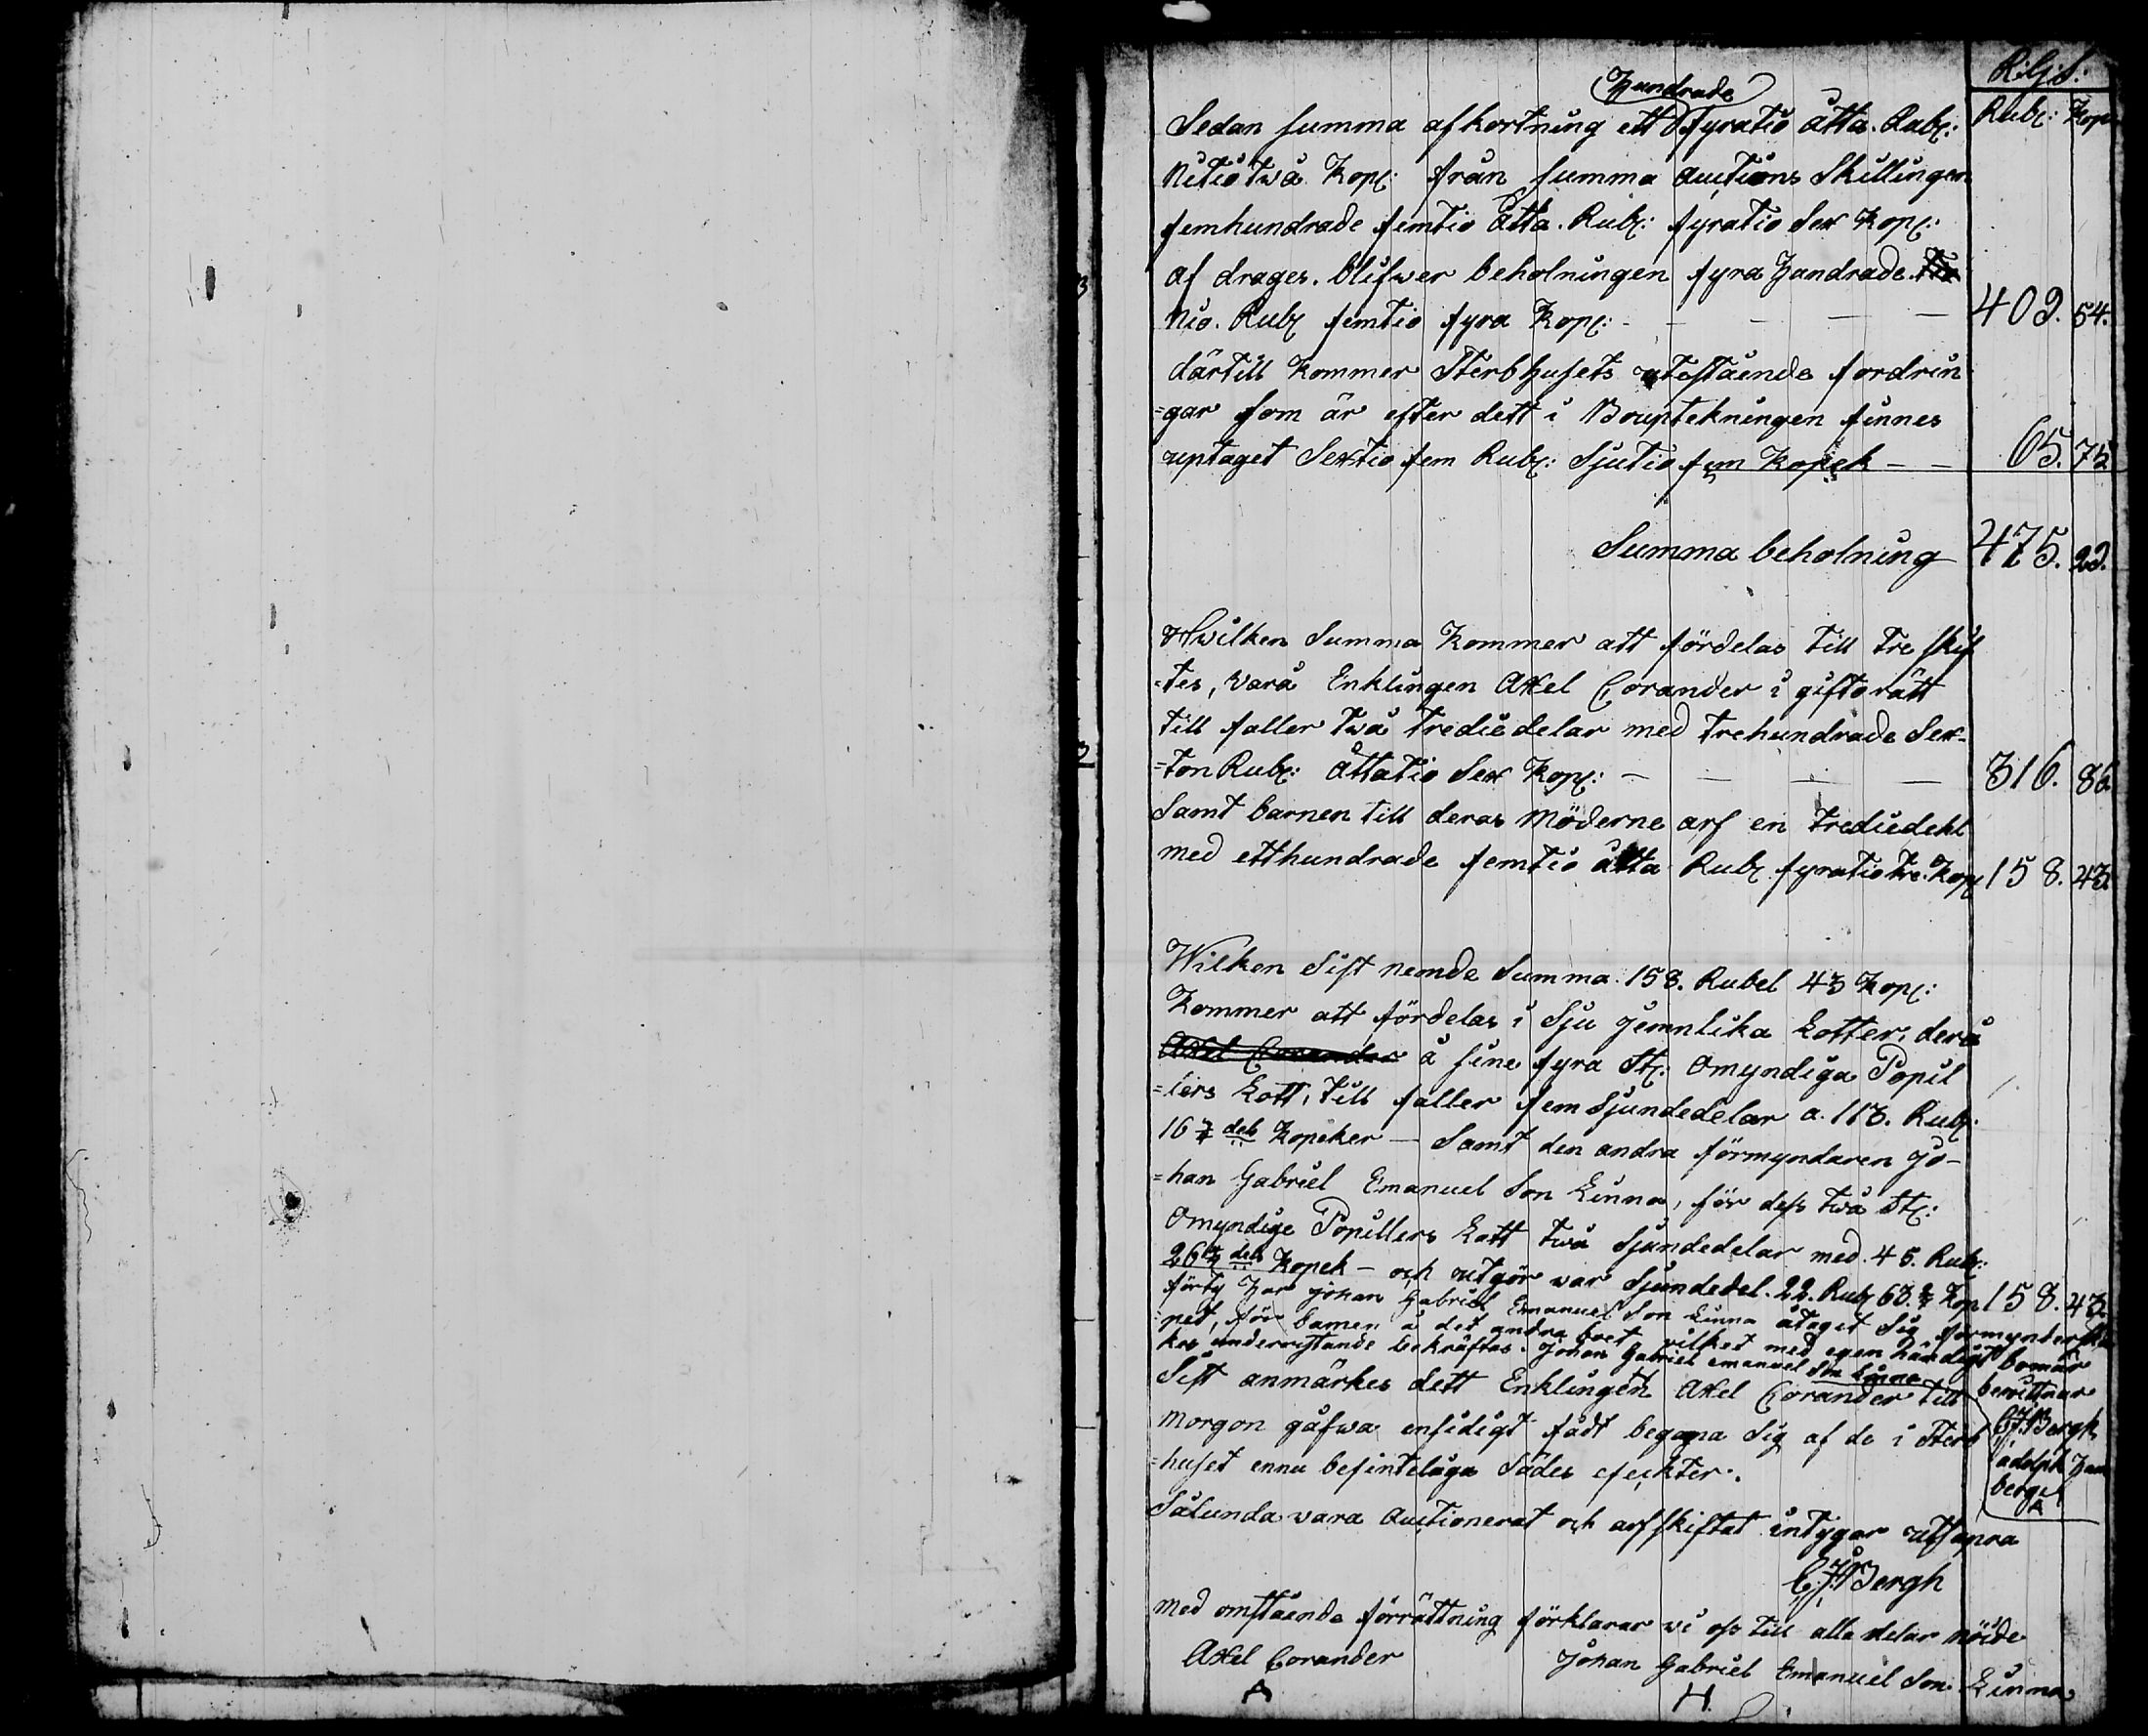 R:G:S:
Rub: Kop
Hundrade
Sedan summa afkortning ett fyratio åtta. Rub:
Nitiotwå Kop: från summa auctions Skillingen
femhundrade femtio åtta. Rub: fyratio Sex Kop:
af drages. blifwer beholningen fyra Hundrade
Nio. Rub: femtio fyra Kop: - - - - - 409. 54.
därtill Kommer Sterbhusets utestående fordrin
=gar som är efter dett i Bouptekningen finnes
uptaget Sextio fem Rub: Sjutio fem Kopek - - 65. 75
Summa beholning 475. 29.
Hwilken Summa Kommer att fördelas till tre skif
=tes, varå Enklingen Axel Corander i giftorätt
till faller twå trediedelar med trehundrade Sex-
=ton Rub: åttatio Sex Kop: - - - - 316. 86
Samt barnen till deras Möderne arf en trediedehl
med etthundrade femtio åtta Rub: fyratio tre. Kop: 158. 43
Wilken Sist nemde Summa. 158. Rubel 43 Kop:
Kommer att fördelas i Sju jemnlika Lotter, derå
Axel Corander å sine fyra St: Omyndiga Popil
=lers Lott, till faller fem Sjundedelar a. 113. Rub:
16 dels Kopeker - Samt den andra förmyndaren Jo-
=han Gabriel Emanuel Son Linna, för dess twå St:
Omyndige Popillers Lott twå Sjundedelar med. 45. Rub:
26 dels Kopek - och utgör war Sjundedel. 22. Rub: 63. Kop 158. 43.
förty har Johan Gabriel Emanuel Son Linna åtaget Sig förmynderska
pet, för barnen å det andra boet vilket med egen händigt bomär
kes underristande bekräftas. Johan Gabriel Emanuel Son Linna
bewittnar
C:J:Bergh
adolph Ham
berg
Sist anmärkes dett Enklingen Axel Corander till
Morgon gåfwa ensidigt fådt begagna Sig af de i Sterb
=huset ennu befinteliga Sådes efeckter.
Sålunda vara Auctionerat och arfskiftat intygar utsupra
C:J:Bergh
Med omstående förrättning förklarar wi oss till alla delar nöide
Axel Corander Johan Gabriel Emanuel Son Linna